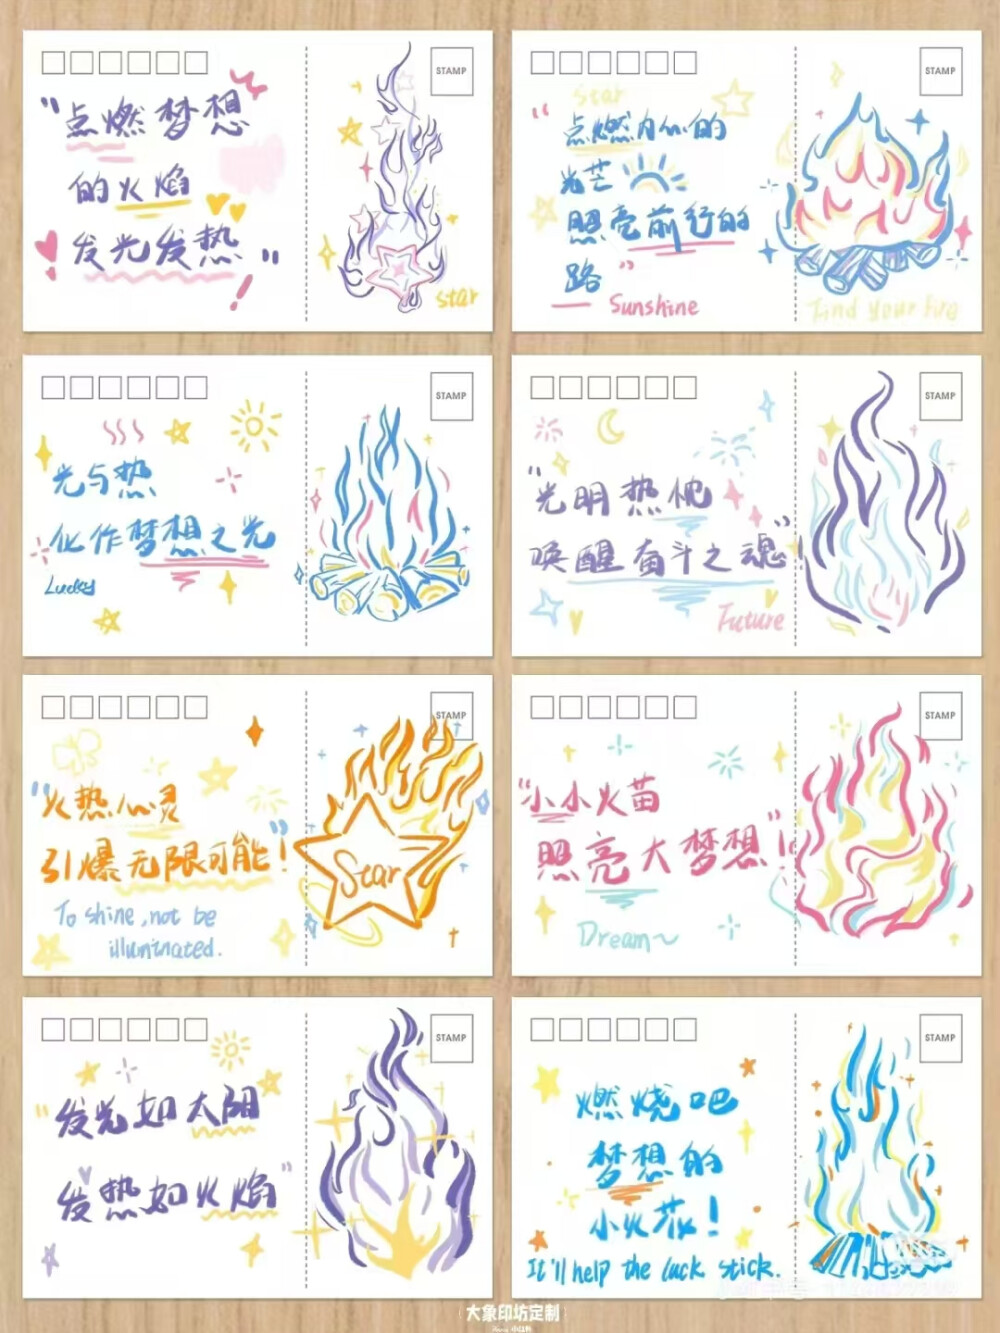 STAMP
"点燃梦想
的火焰
发光发热"
star
STAMP
star
"点燃内心的
光芒
照亮前行的
路"
Sunshine
Find your fire
STAMP
光与热
化作梦想之光
Lucky
STAMP
"光明热忱
唤醒奋斗之魂"
Future
STAMP
"火热心灵
引爆无限可能"!
Star
To shine, not be
illuminated.
STAMP
"小小火苗
照亮大梦想"!
Dream~
STAMP
"发光如太阳
发热如火焰"
STAMP
燃烧吧
梦想的
小火花!
It'll help the luck stick.
大象印坊定制